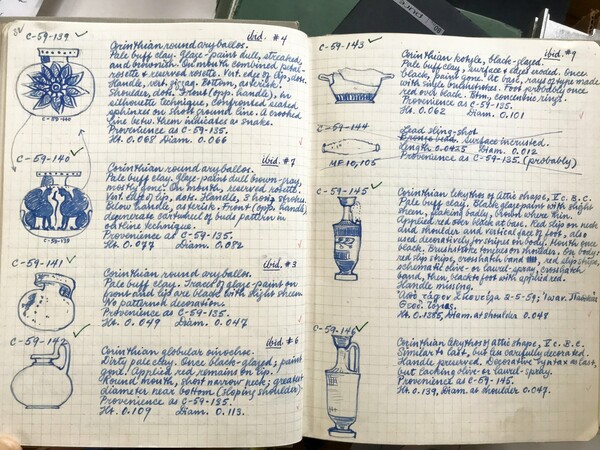 C-59-139 ibid. #4
Corinthian round aryballos.
Pale buff clay. Glaze-paint dull, streaked,
and brownish. On mouth combined petal-
rosette & reserved rosette. Vert. edge of lip, dots.
Handle, vert. zigzag. Bottom, asterisk.
Shoulder, dots. Front (opp. handle), in
silhouette technique, confronted seated
sphinxes on short ground line. A crooked
line betw. them indicates a snake.
Provenience as C-59-135.
Ht. 0.068 Diam. 0.066
C-59-140
C-59-140 ibid. #7
Corinthian round aryballos.
Pale buff clay. Glaze-paint dull brown-gray,
mostly gone. On mouth, reserved rosette.
Vert. edge of lip, dots. Handle, 3 horiz. strokes.
Below handle, asterisk. Front (opp. handle)
degenerate cartwheel of buds pattern in
outline technique.
Provenience as C-59-135.
Ht. 0.077 Diam. 0.082
C-59-139
C-59-141 ibid. #3
Corinthian round aryballos.
Pale buff clay. Traces of glaze-paint on
front and lip are black with slight sheen.
No patterned decoration.
Provenience as C-59-135.
Ht. 0.049 Diam. 0.047
C-59-142 ibid #6
Corinthian globular oinochoe.
Dirty pale clay, once black-glazed; paint
gone. Applied red remains on lip.
Round mouth, short narrow neck; greatest
diameter near bottom (sloping shoulder).
Provenience as C-59-135.
Ht. 0.109 Diam. 0.113.
C-59-143 ibid. #9
Corinthian kotyle, black-glazed.
Pale buff clay, surface & edges eroded. Once
black, paint gone. At base, rays of type made
with single brushstrokes. Foot probably once
red over black. Btm., concentric rings.
Provenience as C-59-135.
Ht. 0.062 Diam. 0.101
C-59-144
Lead sling-shot
Bronze bead. Surface incrusted.
Length 0.0425 Diam. 0.012
MF.10,105 Provenience as C-59-135 (probably)
C-59-145
Corinthian lekythos of Attic shape, V c. B.C.
Pale buff clay. Black glaze paint with slight
sheen, flaking badly, brown where thin.
Applied red also flakes at base. Red slip on neck
and shoulder and vertical face of foot, also
used decoratively for stripes on body. Mouth once
black. Brushstroke tongues on shoulder. On body:
red slip stripe, crosshatch band, red slip stripe,
schematic olive- or laurel-spray, crosshatch
band, then black to foot with applied red.
Handle missing.
Ht. 0.1385, Diam. at shoulder 0.048
C-59-146
Corinthian lekythos of Attic shape, V c. B.C.
Similar to last, but less carefully decorated.
Handle preserved. Decorative syntax as last,
but lacking olive- or laurel-spray.
Provenience as C-59-145.
Ht. 0.139, Diam. at shoulder 0.047.